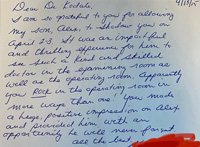 4/13/15
Dear Dr. Kodali,
I am so grateful to you for allowing
my son, Alex, to shadow you on
April 2-3. It was an impactful
and thrilling experience for him to
see such a kind and skilled
doctor in the examining room as
well as the operating room. Apparently
you ROCK in the operating room in
more ways than one! You made
a huge, positive impression on Alex
and provided him with an
opportunity he will never forget
all the best,